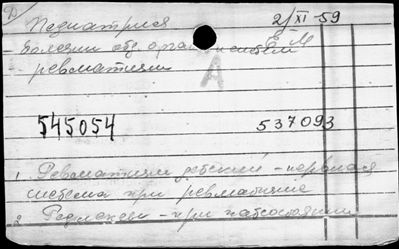 Педиатрия 2/XI-59
- болезни отд. органов и систем Е-М
- ревматизм
А
545054 537093
1. Ревматизм детский - нервная
система при ревматизме
2. - при